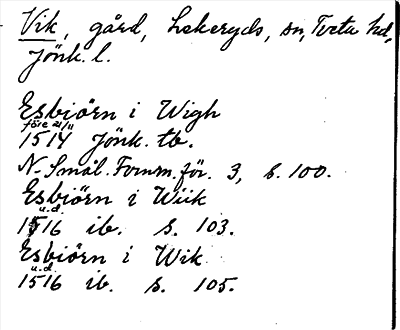 Vik, gård, Lekeryds, sn, Tveta hd,
Jönk. l.
Esbjörn i Wigh
före 21/11
1514 Jönk. tb.
N. Smål. Fornm. för. 3, s. 100.
Esbjörn i Wiik
u.d.
1516 ib. s. 103.
Esbiörn i Wik
u.d.
1516 ib. s. 105.